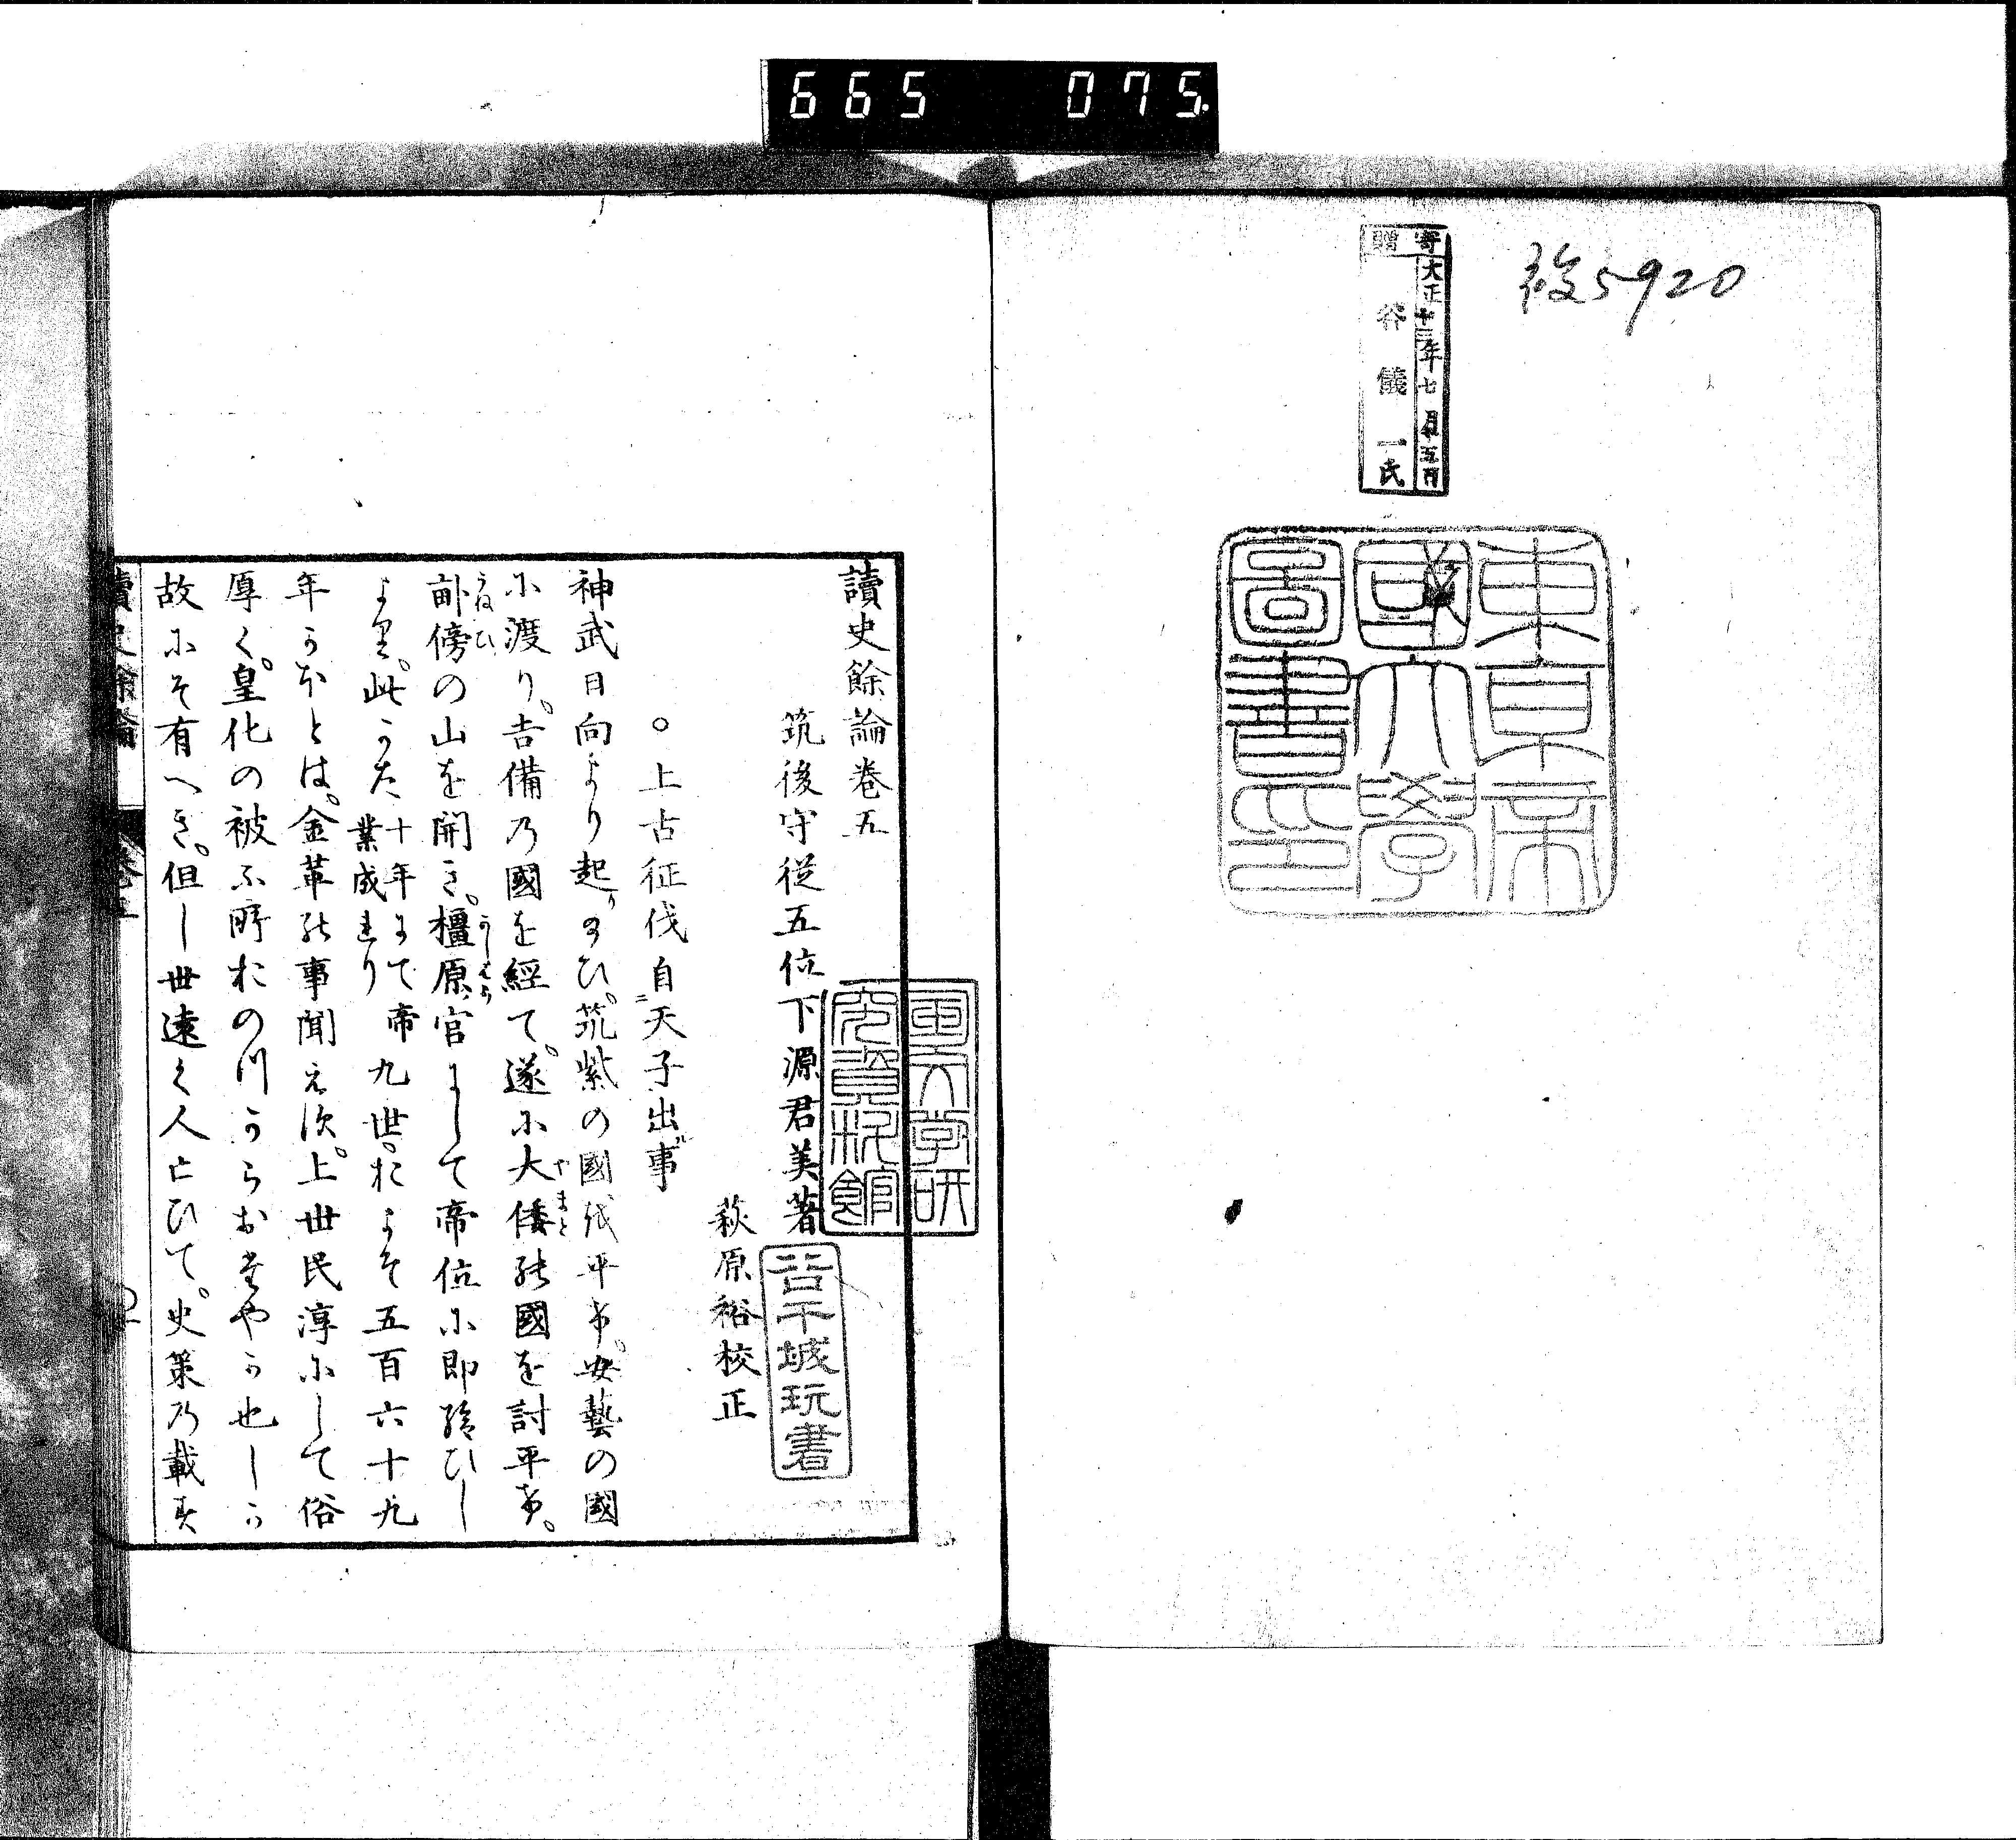 665 075.
被5920
寄贈
大正十三年七月十五日
谷儀一氏
東京帝
國大學
圖書印
讀史餘論卷五
筑後守従五位下源君美著
萩原裕校正
国文学研
究資料館
苔干城玩書
○上古征伐自天子出事
神武日向より起り給ひ。筑紫の國を平げ。安藝の國
に渡り。吉備乃國を經て。遂に大倭の國を討平げ。
畝傍の山を開き。橿原ノ宮にして帝位に即給ひし
より。此かた十年にて帝業成れり九世。およそ五百六十九
年がほどは。金革の事聞えず。上世民淳にして俗
厚く。皇化の被ふ所おのづからおだやか也しか
故にぞ有へき。但し世遠く人亡ひて。史策乃載す
讀史餘論 卷五